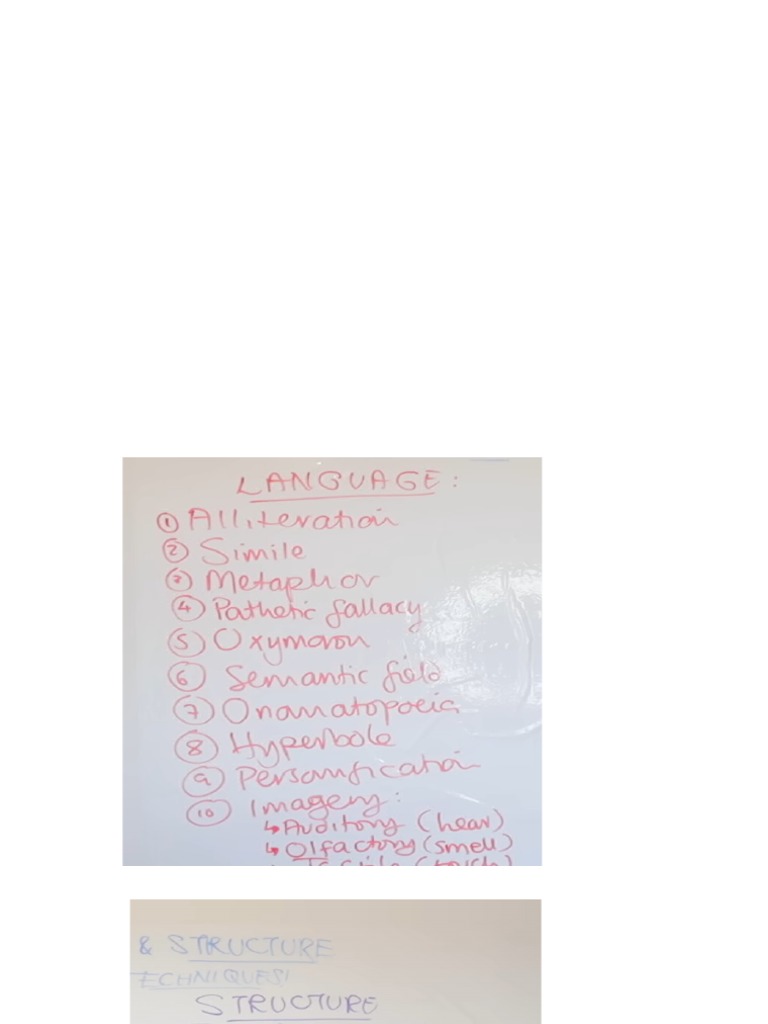 LANGUAGE:
① Alliteration
② Simile
③ Metaphor
④ Pathetic fallacy
⑤ Oxymoron
⑥ Semantic field
⑦ Onamatopoeia
⑧ Hyperbole
⑨ Personification
⑩ Imagery:
↳ Auditory (hear)
↳ Olfactory (smell)
& STRUCTURE
TECHNIQUES!
STRUCTURE